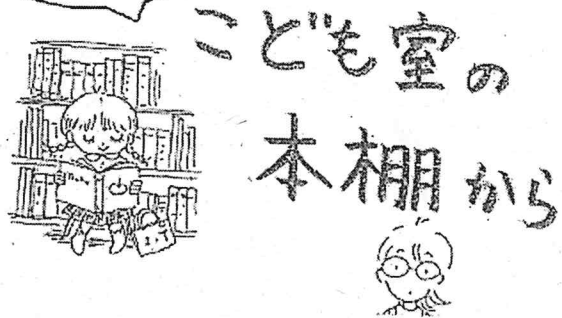 こども室の
本棚から